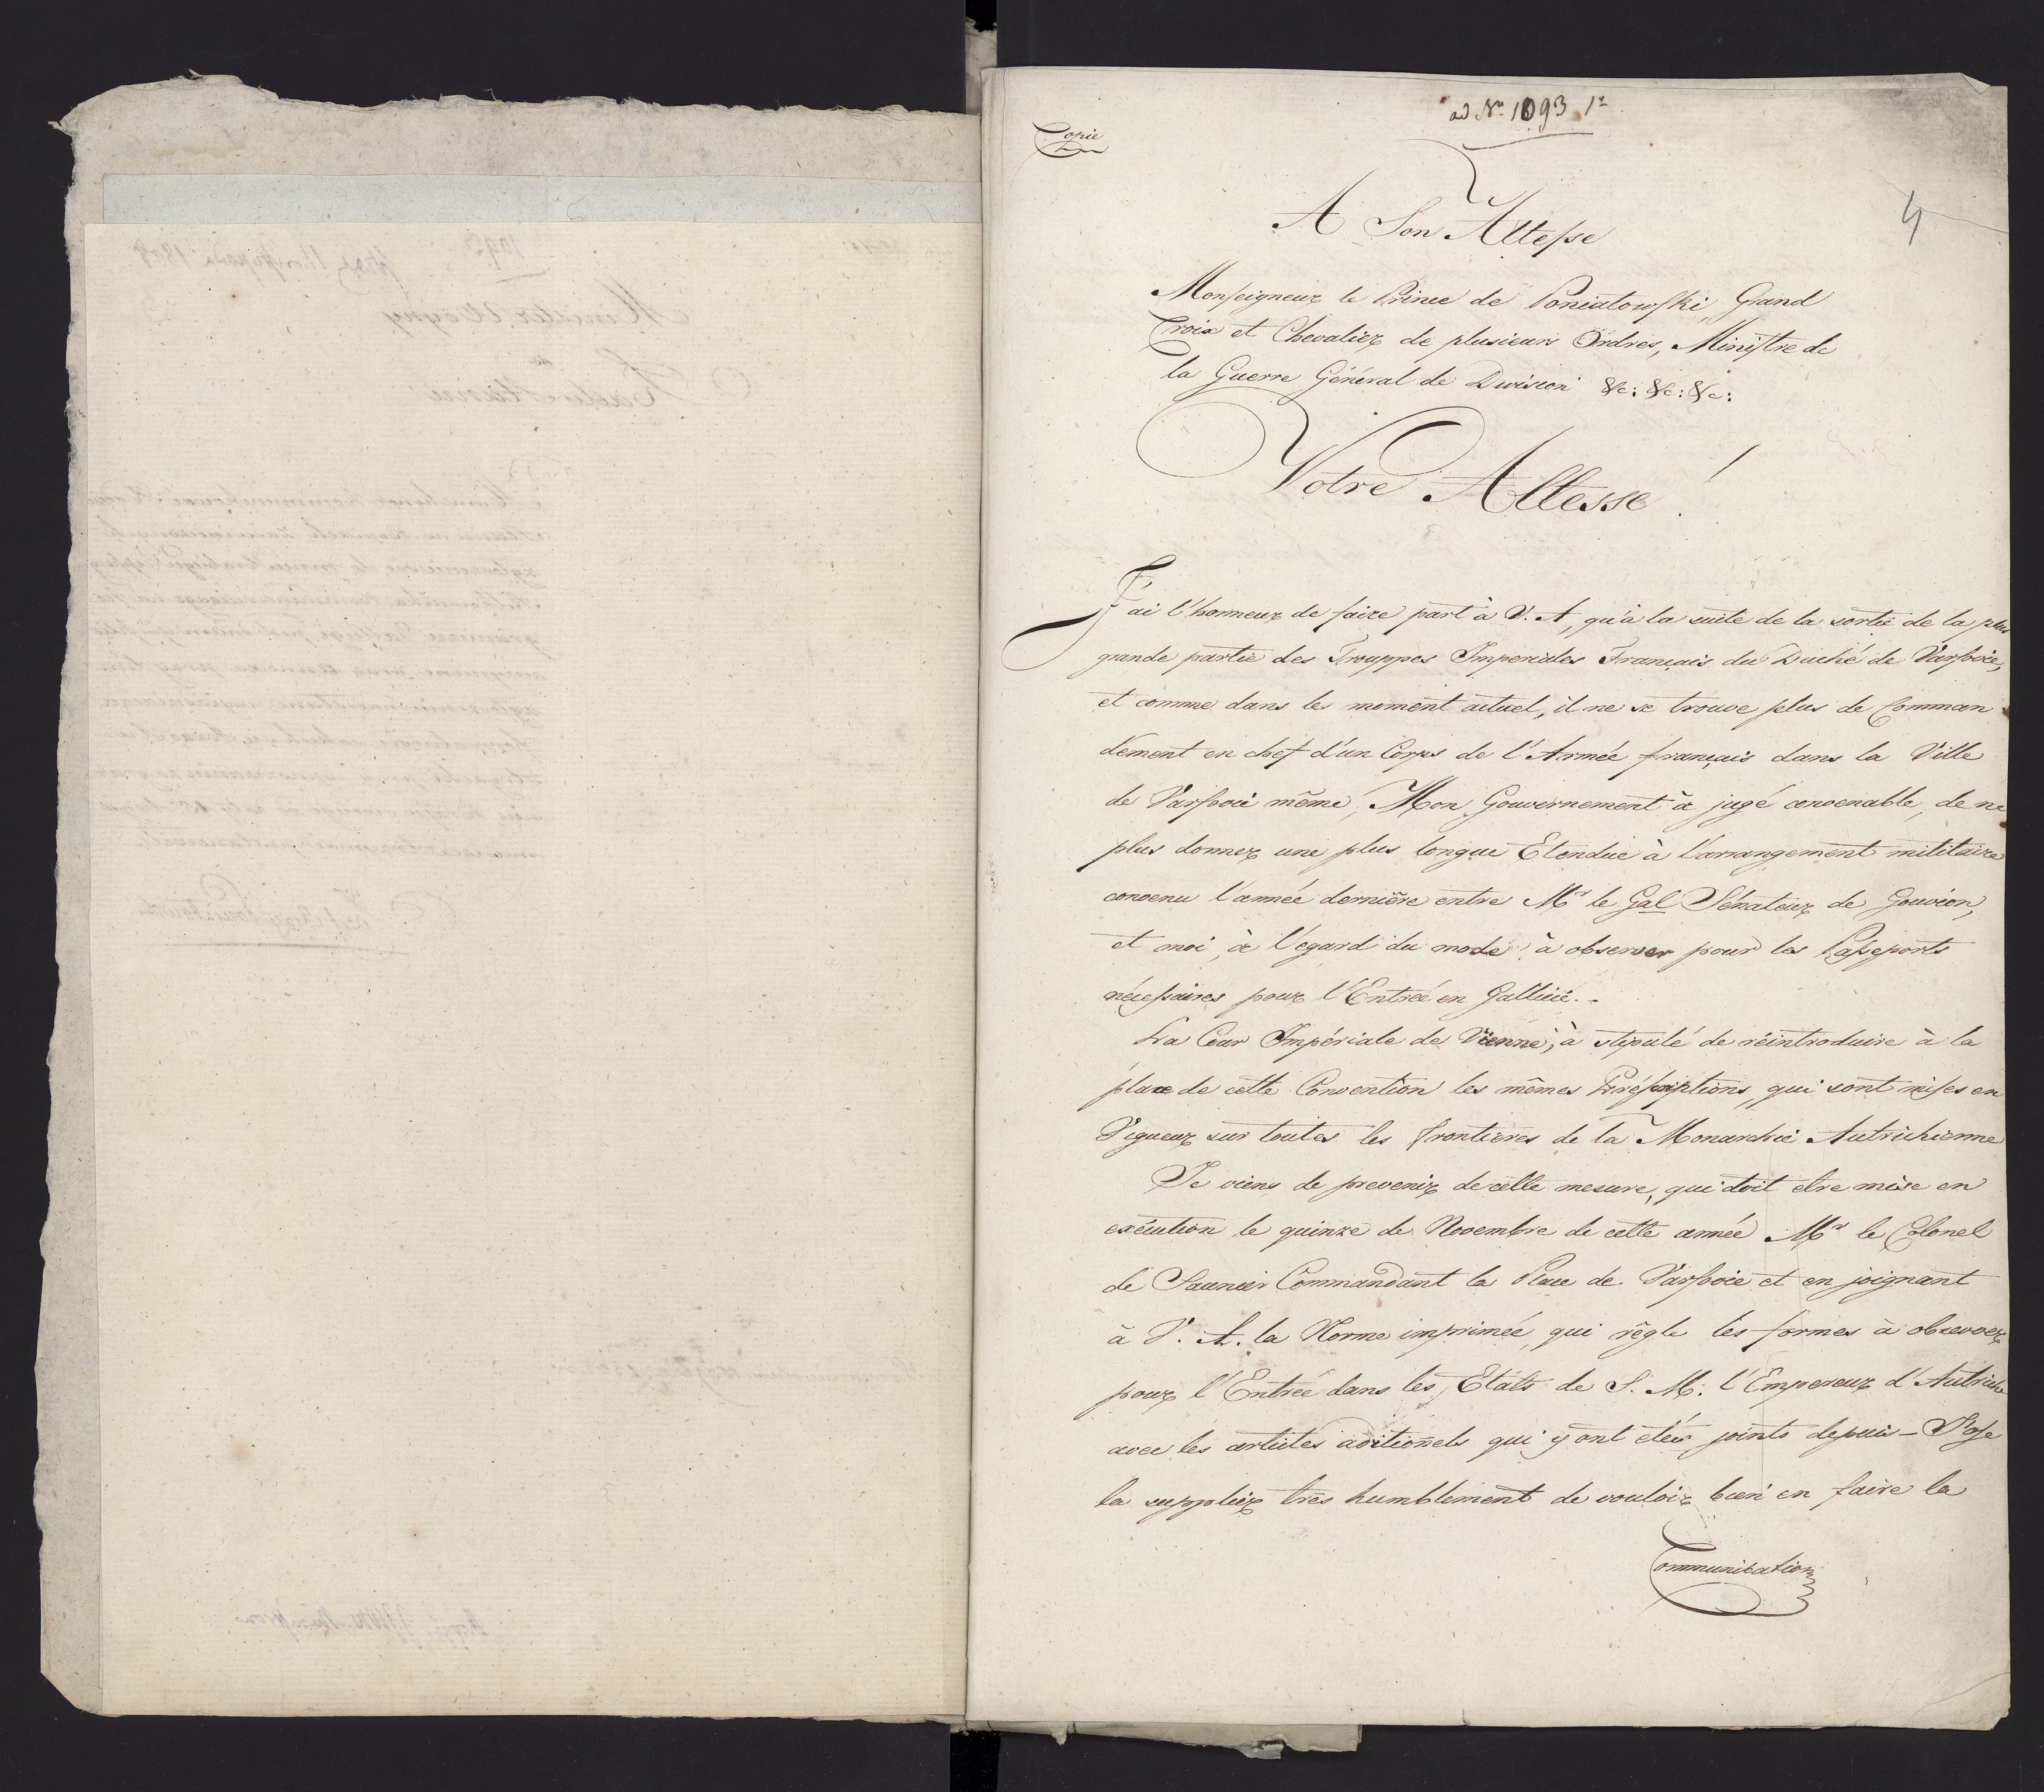 ad Nr. 1093 1z
Copie
4
A Son Altesse
Monseigneur le Prince de Poniatowski, Grand
Croix et Chevalier de plusieurs Ordres, Ministre de
la Guerre Général de Division &c: &c: &c:
Votre Altesse!
J'ai l'honneur de faire part à V. A, qu'à la suite de la sortie de la plus
grande partie des Trouppes Imperiales Français du Duché de Varsovie,
et comme dans le moment actuel, il ne se trouve plus de Comman
dement en chef d'un Corps de l'Armée français dans la Ville
de Varsovie même, Mon Gouvernement à jugé convenable, de ne
plus donner une plus longue Etendue à l'arrangement militaire
convenu l'année dernière entre Mr le Gal Sénateur de Gouvion,
et moi, à l'egard du mode à observer pour les Passeports
nécessaires pour l'Entrée en Gallicie. -
La Cour Impériale de Vienne, à stipulé de réintroduire à la
place de cette Convention les mêmes Préscriptions, qui sont mises en
Vigueur sur toutes les frontieres de la Monarchie Autrichienne
Je viens de prevenir de cette mesure, qui doit etre mise en
exécution le quinze de Novembre de cette année Mr le Colonel
de Saunier Commandant la Place de Varsovie et en joignant
à V. A. la Norme imprimée, qui règle les formes à observer
pour l'Entrée dans les Etats de S. M. l'Empereur d'Autriche
avec les articles aditionels qui y ont etées joints depuis - J'ose
la supplier très humblement de vouloir bien en faire la
Communication